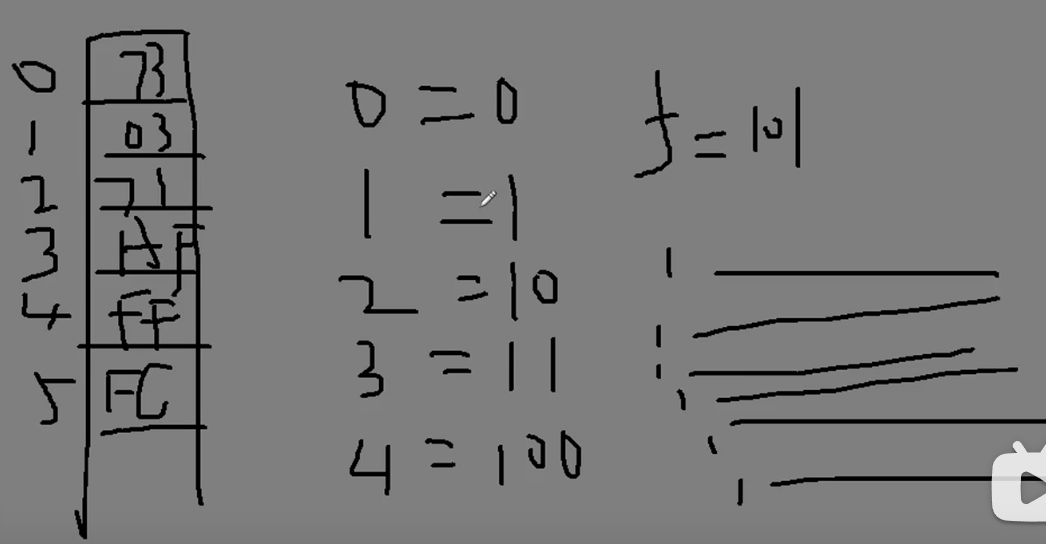 0 73
1 03
2 71
3 AF
4 FF
5 FC
0 = 0
1 = 1
2 = 10
3 = 11
4 = 100
5 = 101
1
1
1
1
1
1